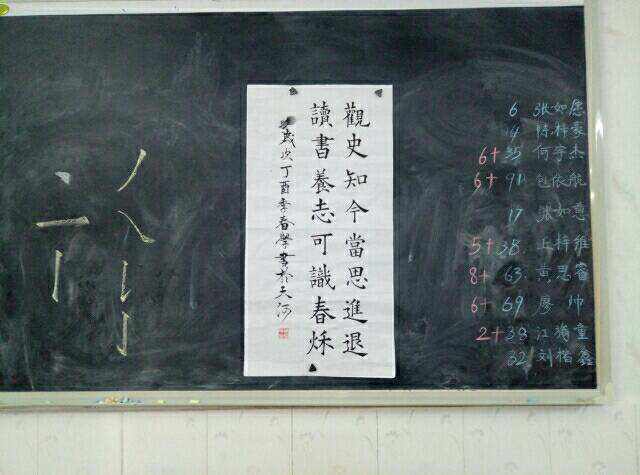 觀史知今當思進退
讀書養志可識春秋
歲次丁酉季春學書於天河
6 张如
14 梓豪
6+35 何宇杰
6+91 包依航
17 张如意
5+38 王梓维
8+63 黄思睿
6+69 廖帅
2+38 江童
32 刘楷鑫